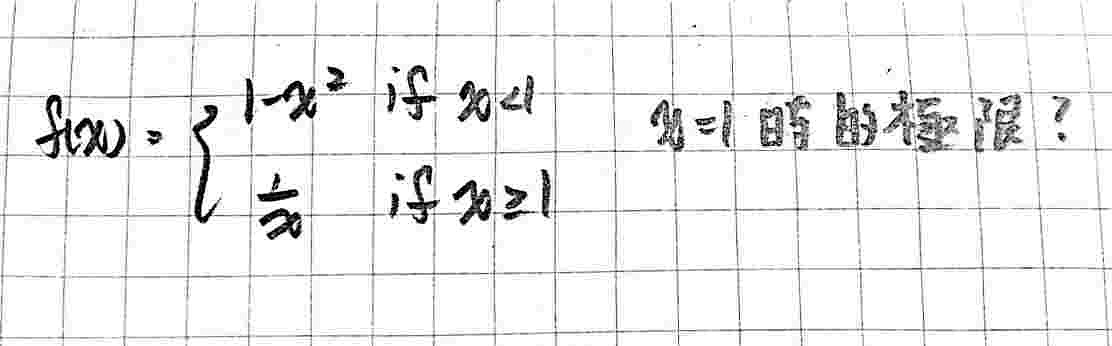 f(x) = { 1-x² if x<1
1/x if x≥1
x=1 時的極限?